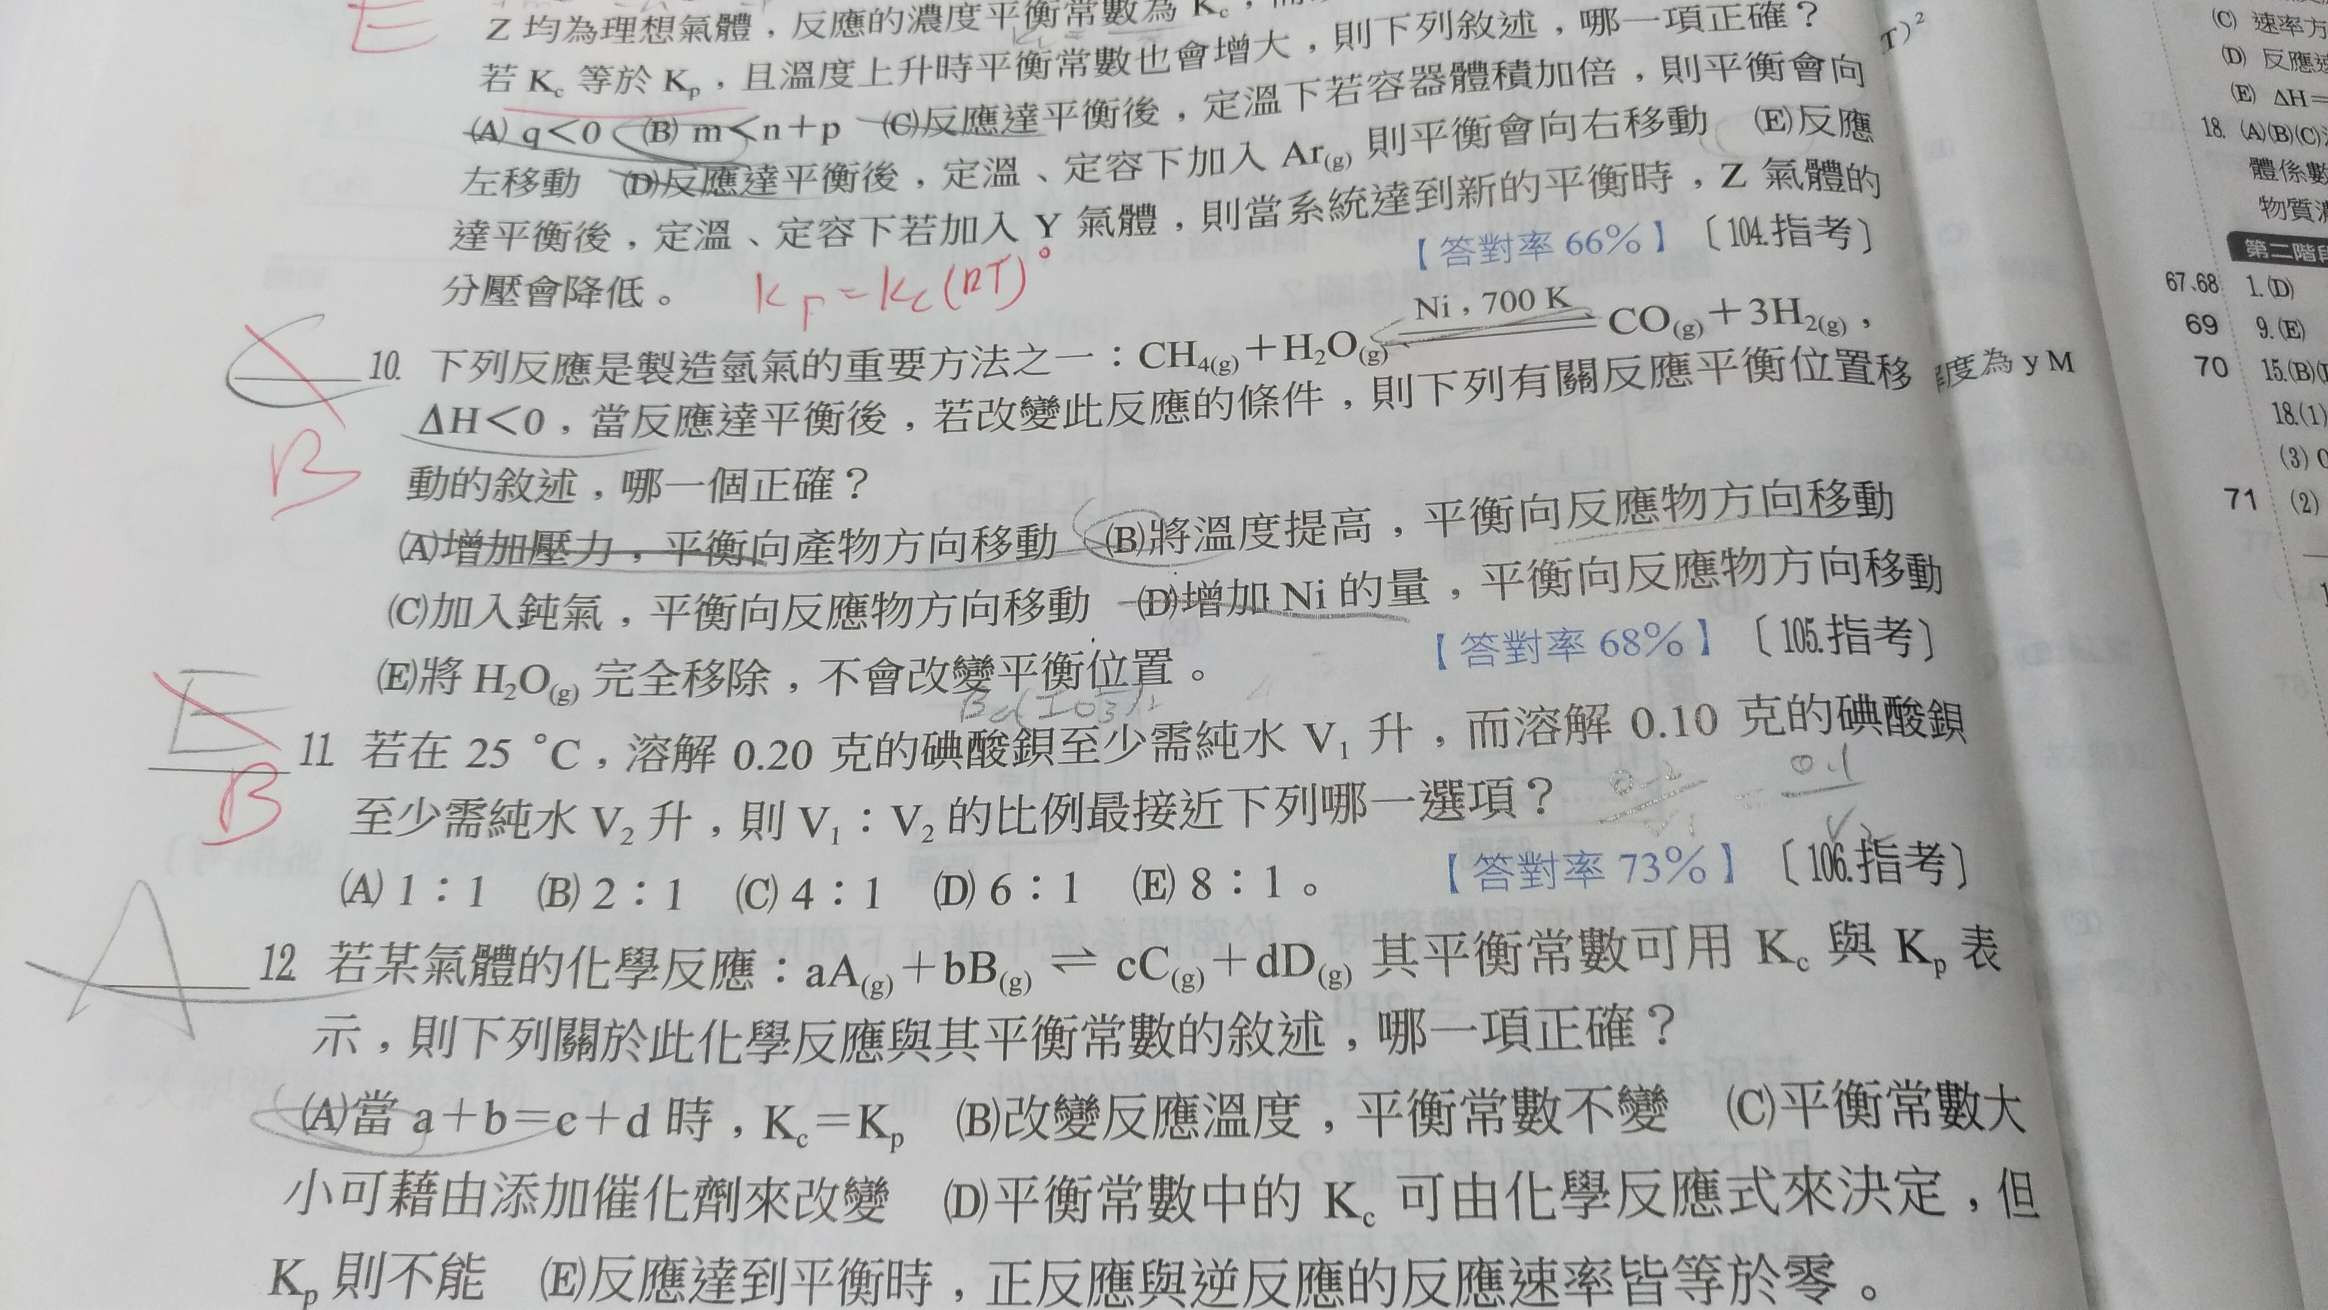 E
Z 均為理想氣體，反應的濃度平衡常數為 Kc，
若 Kc 等於 Kp，且溫度上升時平衡常數也會增大，則下列敘述，哪一項正確？
(A) q＜0 (B) m＜n＋p (C)反應達平衡後，定溫下若容器體積加倍，則平衡會向
左移動 (D)反應達平衡後，定溫、定容下加入 Ar(g) 則平衡會向右移動 (E)反應
達平衡後，定溫、定容下若加入 Y 氣體，則當系統達到新的平衡時，Z 氣體的
分壓會降低。
【答對率 66%】〔104.指考〕
Kp = Kc (RT)°
C
B
10. 下列反應是製造氫氣的重要方法之一：CH4(g)＋H2O(g) ⇌ CO(g)＋3H2(g)，
Ni，700 K
ΔH＜0，當反應達平衡後，若改變此反應的條件，則下列有關反應平衡位置移
動的敘述，哪一個正確？
(A)增加壓力，平衡向產物方向移動 (B)將溫度提高，平衡向反應物方向移動
(C)加入鈍氣，平衡向反應物方向移動 (D)增加 Ni 的量，平衡向反應物方向移動
(E)將 H2O(g) 完全移除，不會改變平衡位置。
【答對率 68%】〔105.指考〕
Ba(IO3)2
E
B
11. 若在 25 °C，溶解 0.20 克的碘酸鋇至少需純水 V1 升，而溶解 0.10 克的碘酸鋇
至少需純水 V2 升，則 V1：V2 的比例最接近下列哪一選項？
0.2
V1
0.1
V2
(A) 1：1 (B) 2：1 (C) 4：1 (D) 6：1 (E) 8：1。
【答對率 73%】〔106.指考〕
A
12. 若某氣體的化學反應：aA(g)＋bB(g) ⇌ cC(g)＋dD(g) 其平衡常數可用 Kc 與 Kp 表
示，則下列關於此化學反應與其平衡常數的敘述，哪一項正確？
(A)當 a＋b＝c＋d 時，Kc＝Kp (B)改變反應溫度，平衡常數不變 (C)平衡常數大
小可藉由添加催化劑來改變 (D)平衡常數中的 Kc 可由化學反應式來決定，但
Kp 則不能 (E)反應達到平衡時，正反應與逆反應的反應速率皆等於零。
T)²
度為 y M
(C) 速率方
(D) 反應速
(E) ΔH＝
18. (A)(B)(C)
體係數
物質
第二階段
67、68 1.(D)
69 9.(E)
70 15.(B)
18.(1)
(3)
71 (2)